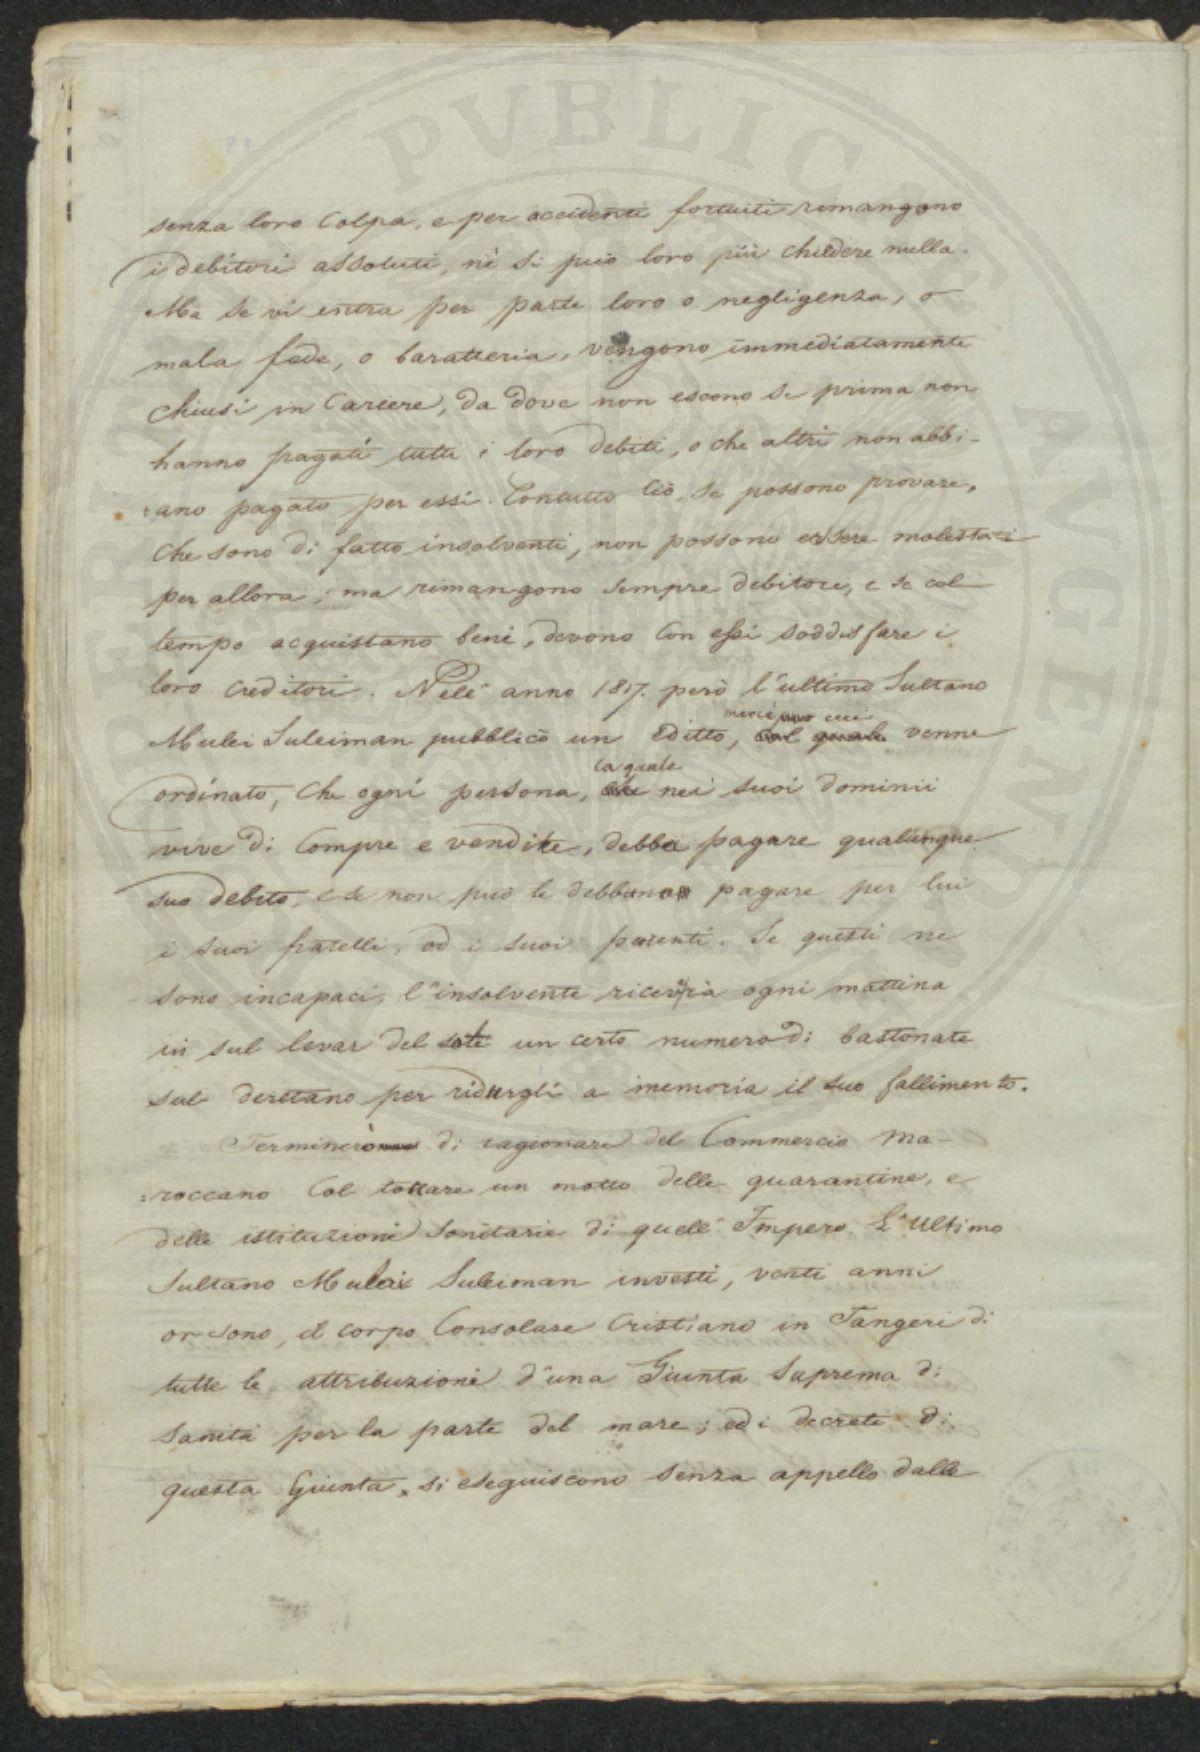 senza loro Colpa, e per accidenti fortuiti rimangono
i debitori assoluti, nè si può loro più chiedere nulla.
Ma se vi entra per parte loro o negligenza, o
mala fede, o baratteria, vengono immediatamente
chiusi in Carcere, da dove non escono se prima non
hanno pagati tutti i loro debiti, o che altri non abbi-
:ano pagato per essi. Contutto Ciò, se possono provare,
che sono di fatto insolventi, non possono essere molestati
per allora; ma rimangono sempre debitori, e se col
tempo acquistano beni, devono Con essi soddisfare i
loro Creditori. Nell' anno 1817. però l'ultimo Sultano
Mulei Suleiman pubblicò un Editto, mercè cui col quale venne
ordinato, che ogni persona, la quale che nei suoi dominii
vive di Compre e vendite, debba pagare qualunque
suo debito, e se non può le debbano pagare per lui
i suoi fratelli, od i suoi parenti. Se questi ne
sono incapaci, l'insolvente riceverà ogni mattina
in sul levar del sole un certo numero di bastonate
sul deretano per ridurgli a memoria il suo fallimento.
Terminerò di ragionare del Commercio Ma-
:roccano Col toccare un motto delle quarantine, e
delle istituzioni Sanitarie di quell' Impero. L'Ultimo
Sultano Mulei Suleiman investì, venti anni
or sono, il corpo Consolare Cristiano in Tangeri di
tutte le attribuzioni d'una Giunta Suprema di
Sanità per la parte del mare; ed i decreti di
questa Giunta si eseguiscono senza appello dalle
PVBLICAE
AVGE